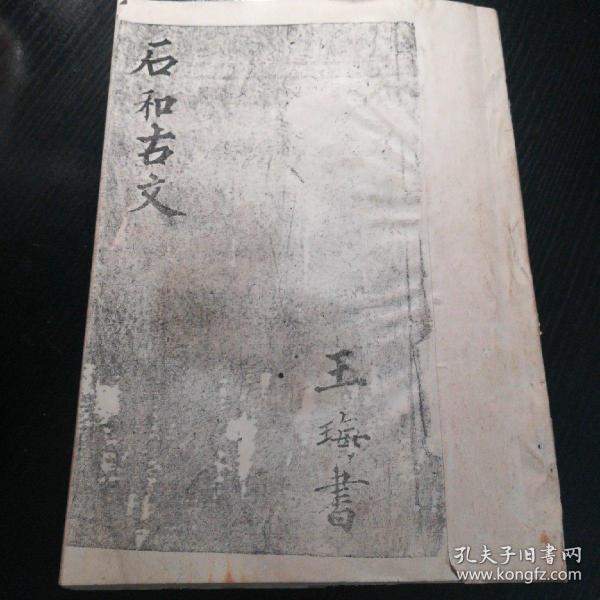 石和古文
王海书
孔夫子旧書网
www.kongfz.com